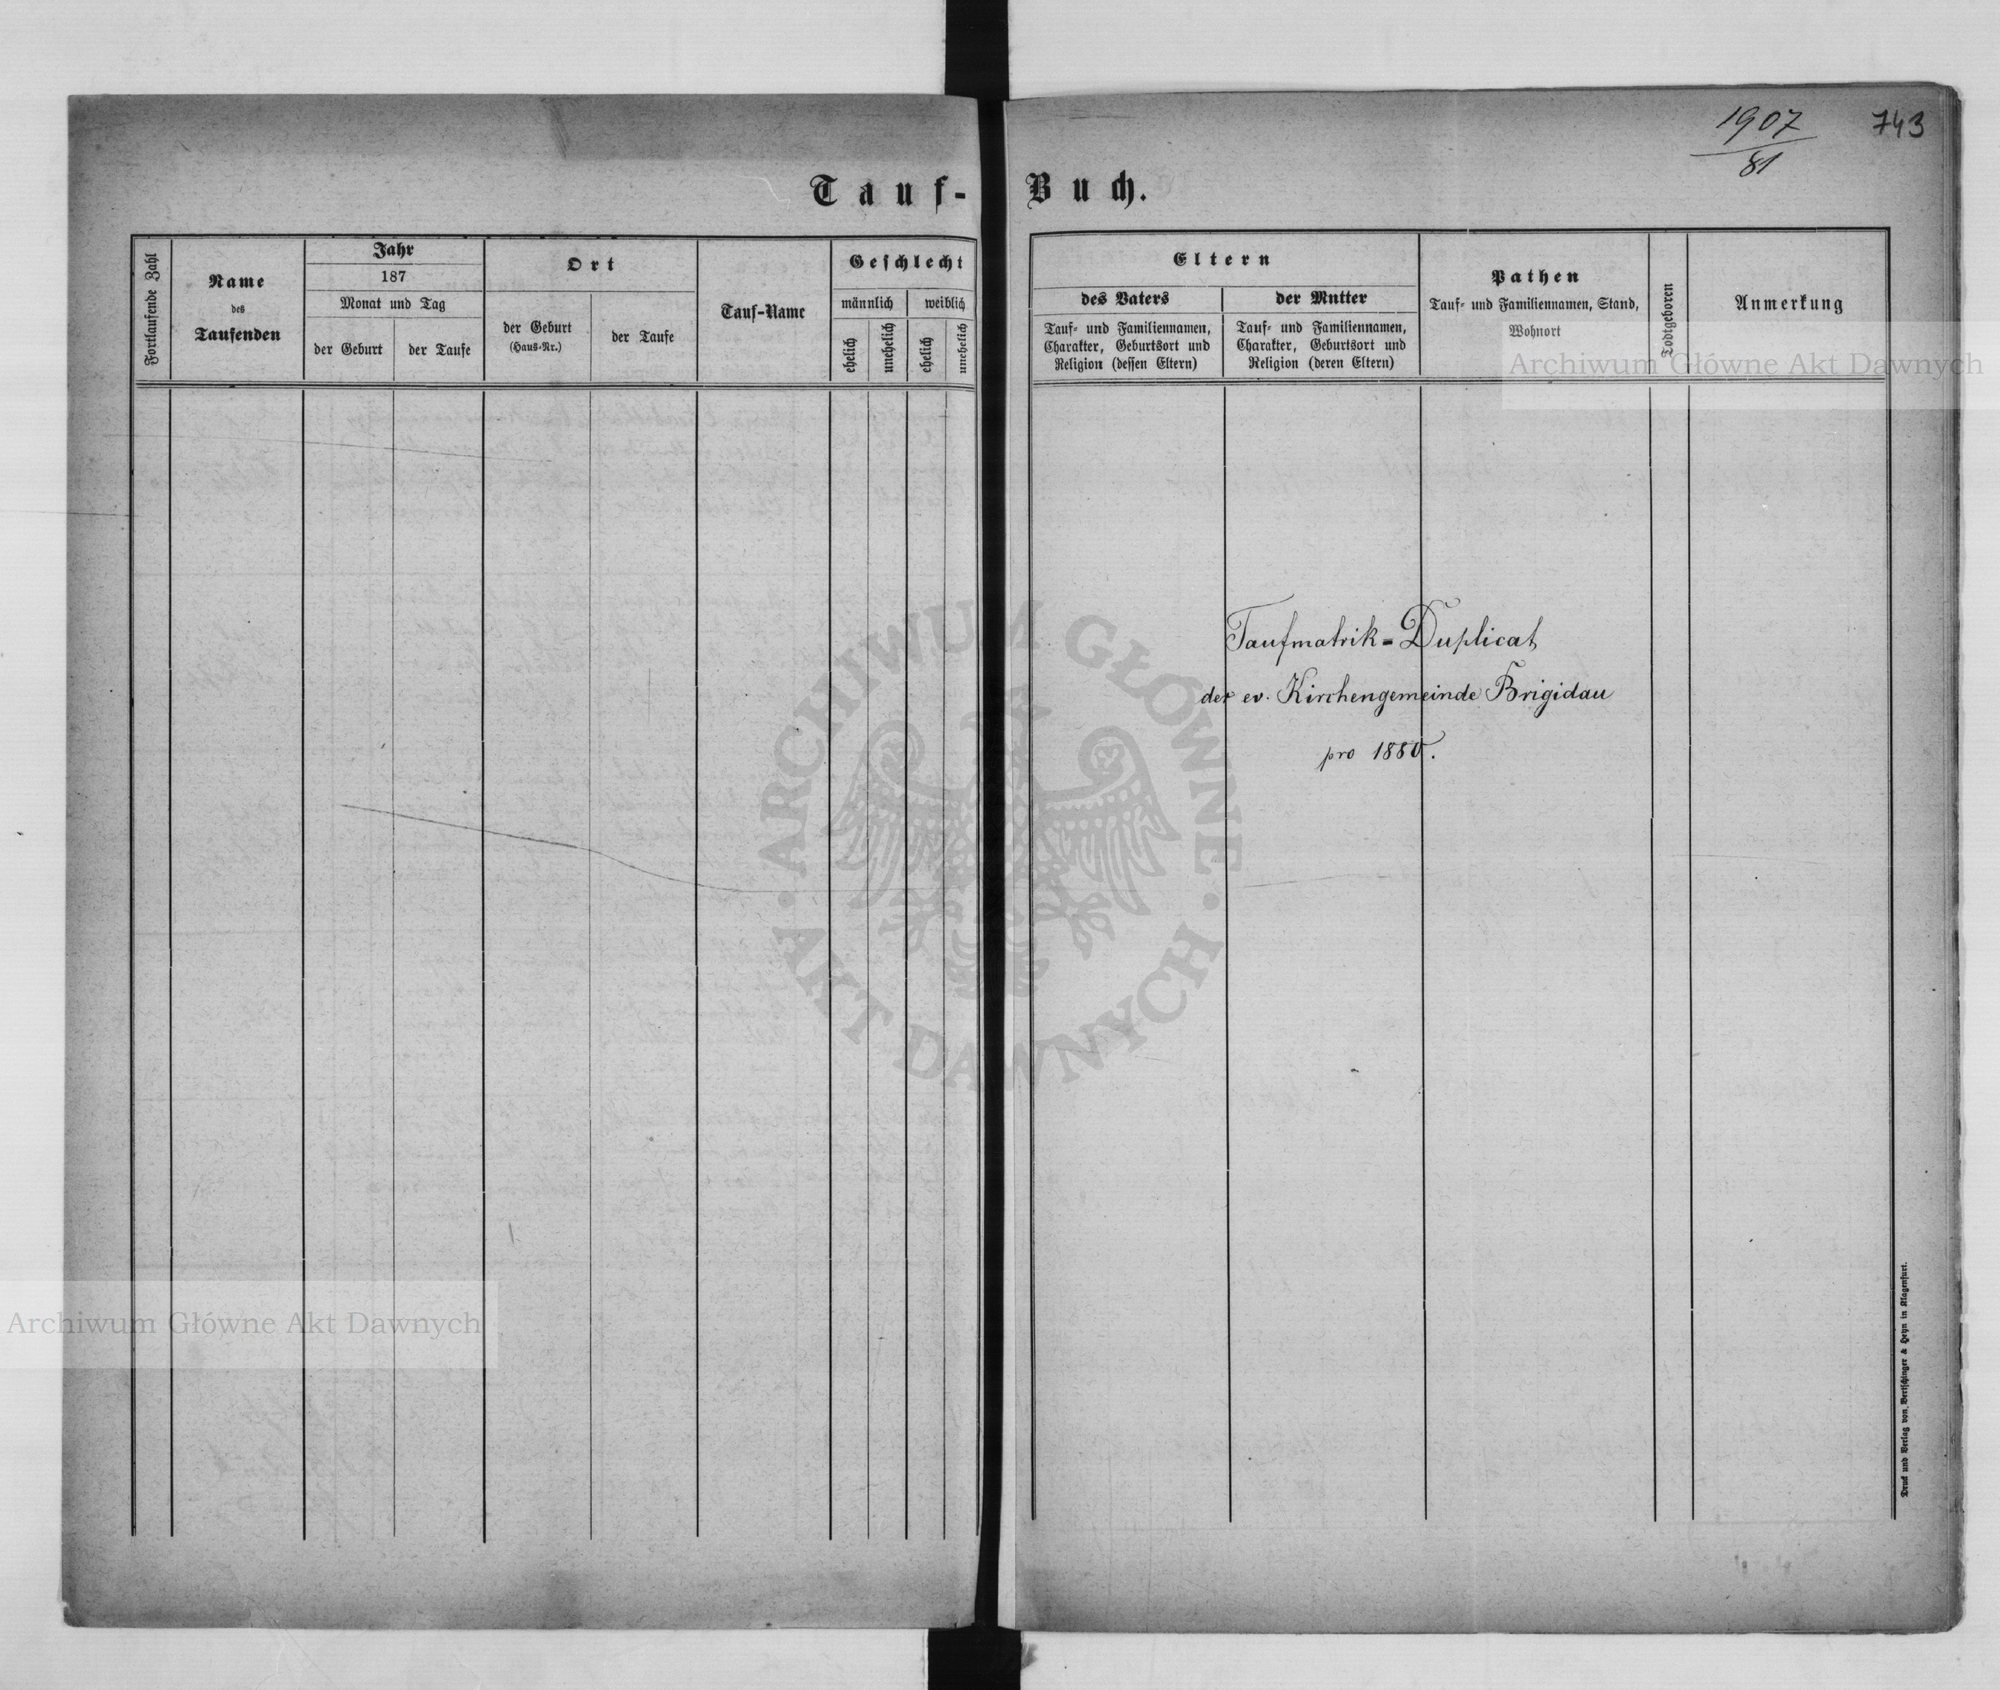 1907
81
743
Tauf-Buch.
Fortlaufende Zahl
Name
des
Taufenden
Jahr
187
Monat und Tag
der Geburt
der Taufe
Ort
der Geburt
(Haus-Nr.)
der Taufe
Tauf-Name
Geschlecht
männlich
weiblich
ehelich
unehelich
ehelich
unehelich
Eltern
des Vaters
Tauf- und Familiennamen,
Charakter, Geburtsort und
Religion (dessen Eltern)
der Mutter
Tauf- und Familiennamen,
Charakter, Geburtsort und
Religion (deren Eltern)
Pathen
Tauf- und Familiennamen, Stand,
Wohnort
Todtgeboren
Anmerkung
Archiwum Główne Akt Dawnych
Taufmatrik-Duplicat
der ev. Kirchengemeinde Brigidau
pro 1880.
ARCHIWUM GŁÓWNE
AKT DAWNYCH
Archiwum Główne Akt Dawnych
Druck und Verlag von Bertschinger & Heyn in Klagenfurt.